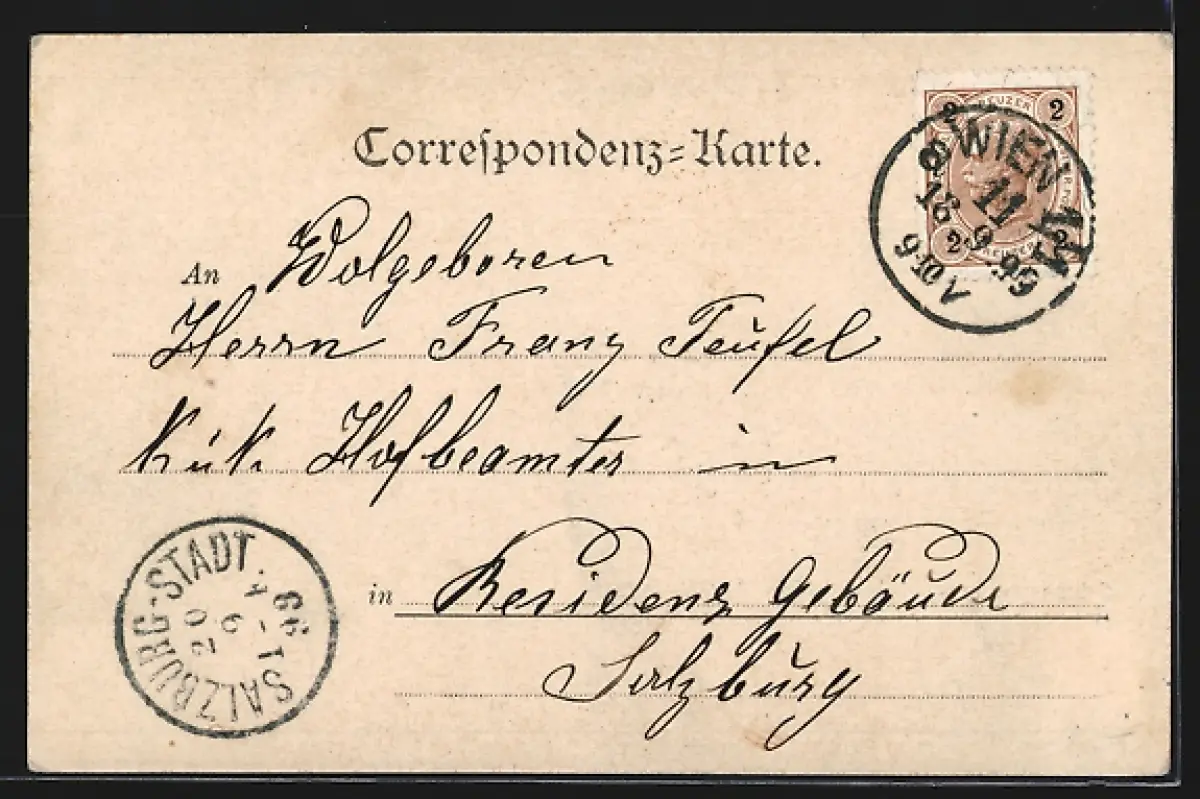 Correspondenz-Karte.
2 KREUZER 2
2 2
WIEN
11
9-10 V
An Wolgeboren
Herrn Franz Teufel
K. u. K. Hofbeamter in
in Residenz Gebäude
Salzburg
SALZBURG-STADT
20 9
99